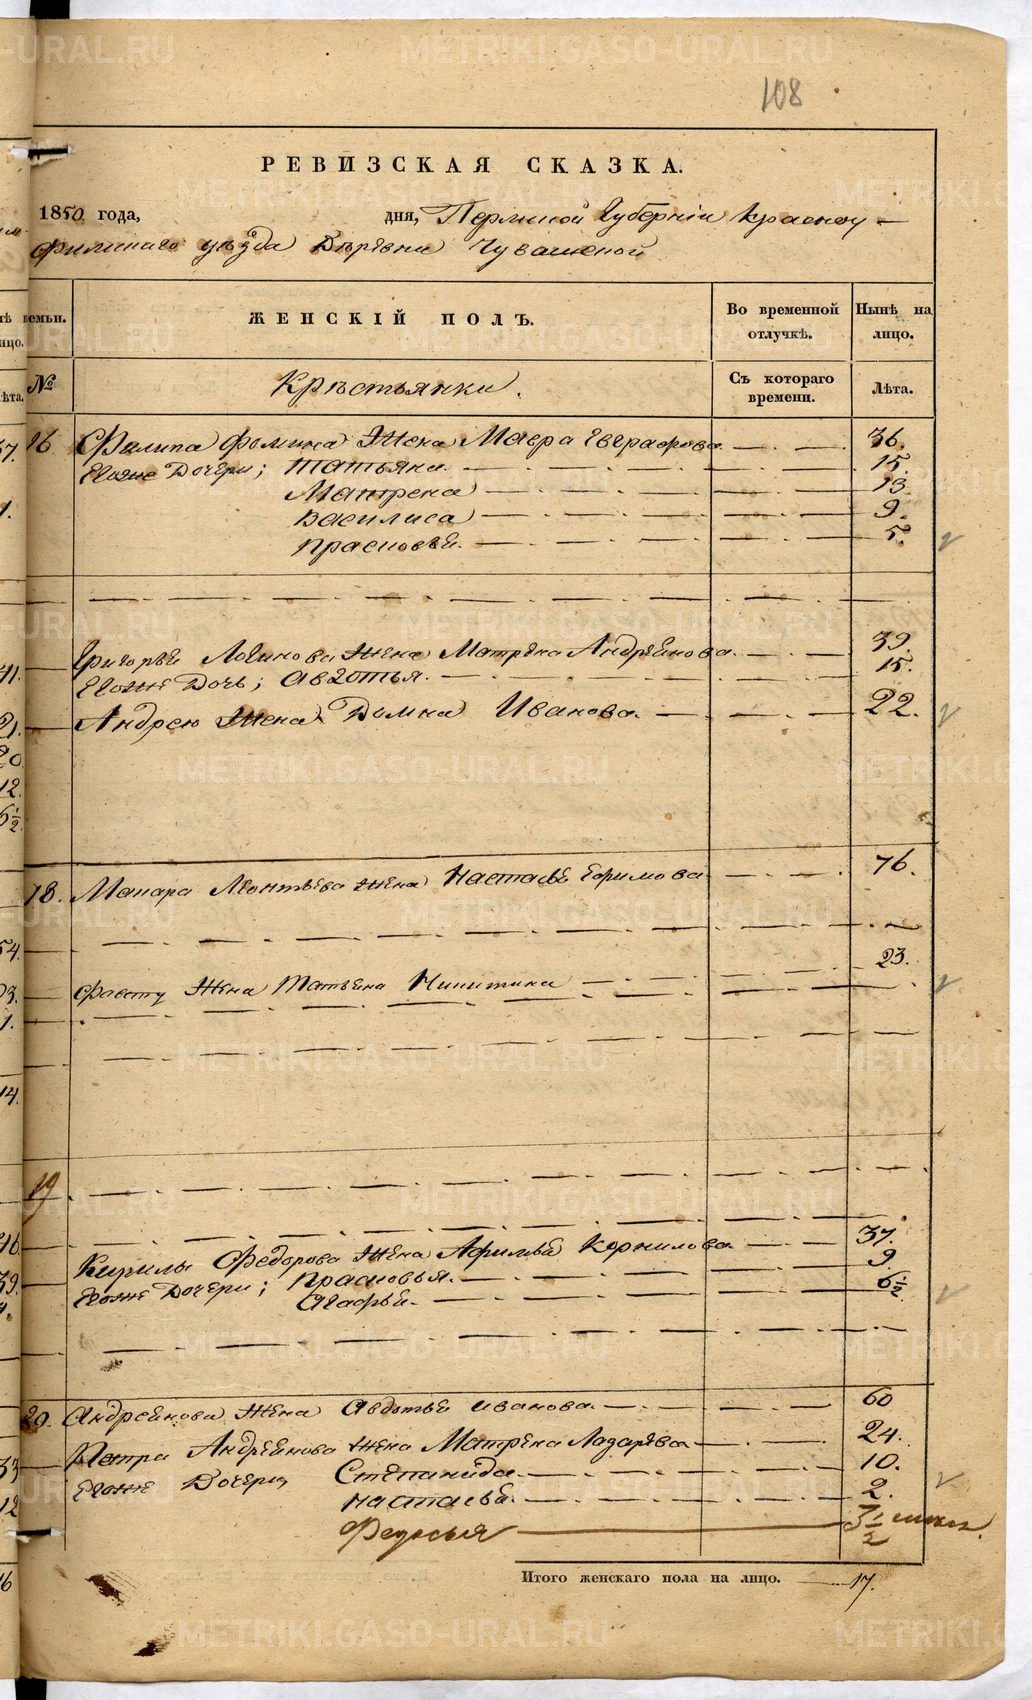 108
РЕВИЗСКАЯ СКАЗКА.
1850 года, дня, Пермской Губернiи Красноу-
фимскаго уѣзда Деревни Чувашской
семьи. ЖЕНСКIЙ ПОЛЪ. Во временной отлучкѣ. Нынѣ на лицо.
№ Крестьянки. Съ котораго времени. Лѣта.
16 Филипа Фомина Жена Мавра Евграфова 36.
Егоже Дочери; Татьяна 15.
Матрена 13.
Василиса 9.
Прасковья. 5.
Григорья Логинова жена Матрена Андреинова. 39.
Егоже Дочь; Авдотья. 15.
Андрею Жена Домна Иванова. 22.
18. Макара Леонтьева жена Настасья Ефимова 76.
Жена Татьяна Никитина 23.
19
Кирилы Федорова Жена Афимья Корнилова 37.
Егоже Дочери; Прасковья. 9.
Агафья. 6 1/2.
20. Андреинова Жена Авдотья Иванова. 60
Петра Андреинова жена Матрена Лазарева 24.
Егоже Дочери, Степанида. 10.
Настасья. 2.
Федосья 3 1/2
Итого женскаго пола на лицо. 17.
METRIKI.GASO-URAL.RU